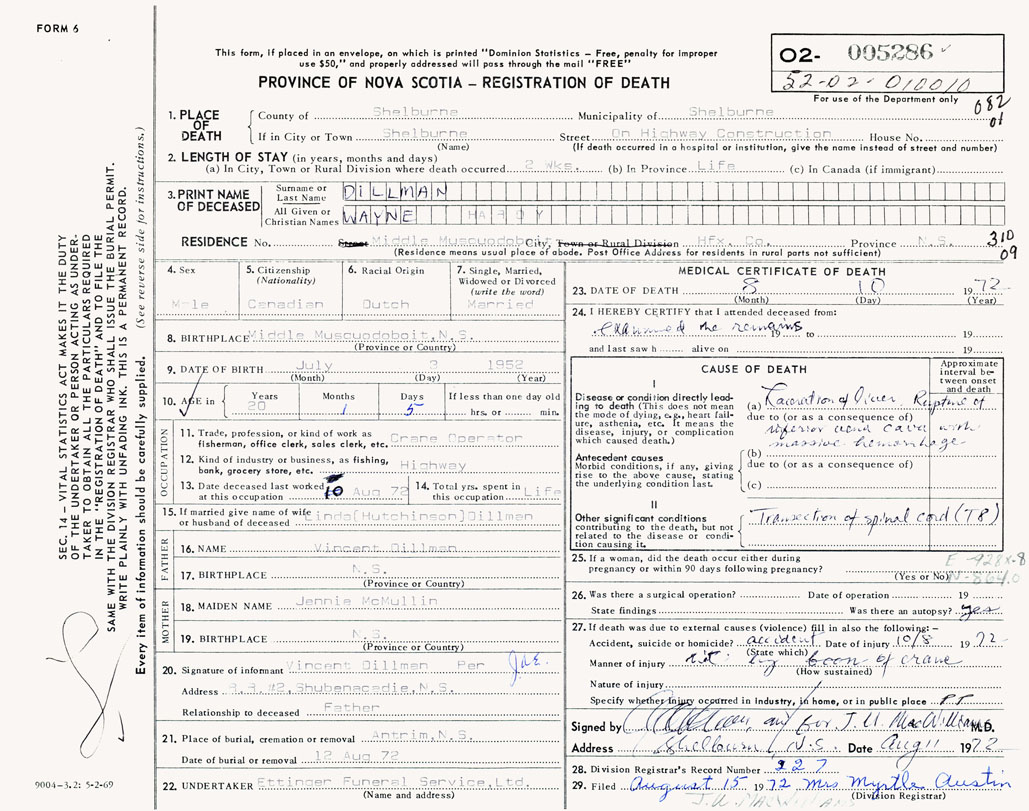 FORM 6
This form, if placed in an envelope, on which is printed "Dominion Statistics – Free, penalty for improper
use $50," and properly addressed will pass through the mail "FREE"
PROVINCE OF NOVA SCOTIA – REGISTRATION OF DEATH
02- 005286
52-02-010010
For use of the Department only
082
01
1. PLACE OF DEATH
County of Shelburne Municipality of Shelburne
If in City or Town Shelburne Street On Highway Construction House No.
(Name) (If death occurred in a hospital or institution, give the name instead of street and number)
2. LENGTH OF STAY (in years, months and days)
(a) In City, Town or Rural Division where death occurred 2 Wks. (b) In Province Life (c) In Canada (if immigrant)
3. PRINT NAME OF DECEASED
Surname or Last Name DILLMAN
All Given or Christian Names WAYNE HARDY
RESIDENCE No. Street Middle Muscuodoboit City, Town or Rural Division Hfx. Co. Province N.S.
310
09
(Residence means usual place of abode. Post Office Address for residents in rural parts not sufficient)
4. Sex
Male
5. Citizenship
(Nationality)
Canadian
6. Racial Origin
Dutch
7. Single, Married,
Widowed or Divorced
(write the word)
Married
8. BIRTHPLACE Middle Muscuodoboit, N.S.
(Province or Country)
9. DATE OF BIRTH July 3 1952
(Month) (Day) (Year)
10. AGE in Years Months Days If less than one day old
20 1 5 hrs. or min.
OCCUPATION
11. Trade, profession, or kind of work as
fisherman, office clerk, sales clerk, etc. Crane Operator
12. Kind of industry or business, as fishing,
bank, grocery store, etc. Highway
13. Date deceased last worked
at this occupation 10 Aug 72
14. Total yrs. spent in
this occupation Life
15. If married give name of wife
or husband of deceased Linda[Hutchinson]Dillman
FATHER
16. NAME Vincent Dillman
17. BIRTHPLACE N.S.
(Province or Country)
MOTHER
18. MAIDEN NAME Jennie McMullin
19. BIRTHPLACE N.S.
(Province or Country)
20. Signature of informant Vincent Dillman Per
Address R.R.#2, Shubenacadie, N.S.
Relationship to deceased Father
21. Place of burial, cremation or removal Antrim, N.S.
Date of burial or removal 12 Aug 72
22. UNDERTAKER Ettinger Funeral Service, Ltd.
(Name and address)
MEDICAL CERTIFICATE OF DEATH
23. DATE OF DEATH 8 10 1972
(Month) (Day) (Year)
24. I HEREBY CERTIFY that I attended deceased from:
examined the remains 19 to 19
and last saw h alive on 19
CAUSE OF DEATH
Approximate
interval be-
tween onset
and death
I
Disease or condition directly lead-
ing to death (This does not
mean the mode of dying, e.g., heart fail-
ure, asthenia, etc. It means the
disease, injury, or complication
which caused death.)
(a) Laceration of Liver. Rupture of
due to (or as a consequence of)
inferior vena cava with
massive hemorrhage
Antecedent causes
Morbid conditions, if any, giving
rise to the above cause, stating
the underlying condition last.
(b)
due to (or as a consequence of)
(c)
II
Other significant conditions
contributing to the death, but not
related to the disease or condi-
tion causing it.
Transection of spinal cord (T8)
25. If a woman, did the death occur either during
pregnancy or within 90 days following pregnancy?
(Yes or No)
E-928X-8
N-864.0
26. Was there a surgical operation? Date of operation 19
State findings Was there an autopsy? yes
27. If death was due to external causes (violence) fill in also the following:–
Accident, suicide or homicide? accident Date of injury 10/8 1972
(State which)
Manner of injury hit by boom of crane
(How sustained)
Nature of injury
Specify whether injury occurred in industry, in home, or in public place
Signed by for J.U. MacWilliam M.D.
Address Shelburne, N.S. Date Aug 11 1972
28. Division Registrar's Record Number 227
29. Filed August 15 1972 Mrs Myrtle Austin
(Division Registrar)
J.U. MacWilliams
SEC. 14 – VITAL STATISTICS ACT MAKES IT THE DUTY
OF THE UNDERTAKER OR PERSON ACTING AS UNDER-
TAKER TO OBTAIN ALL THE PARTICULARS REQUIRED
IN THE "REGISTRATION OF DEATH" AND TO FILE THE
SAME WITH THE DIVISION REGISTRAR WHO SHALL ISSUE THE BURIAL PERMIT.
WRITE PLAINLY WITH UNFADING INK. THIS IS A PERMANENT RECORD.
Every item of information should be carefully supplied. (See reverse side for instructions.)
9004–3.2: 5-2-69